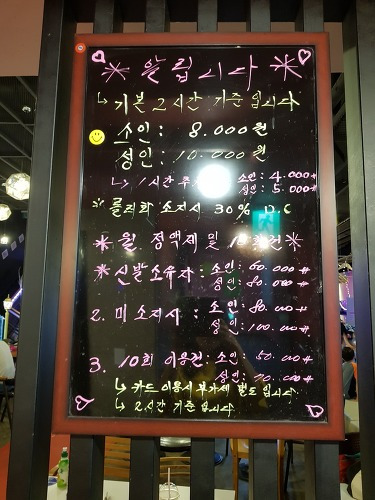 * 알립니다 *
↳ 기본 2시간 기준 입니다
소인: 8.000원
성인: 10.000원
↳ 1시간 소인: 4.000
성인: 5.000
* 롤러화 소지시 30% D.C
* 월 정액제 및 10회권 *
* 신발 소유자: 소인: 60.000
성인: 80.000
2. 미 소지시: 소인: 80.000
성인: 100.000
3. 10회 이용권: 소인: 50.000
성인: 70.000
↳ 카드 이용시 부가세 별도 입니다
↳ 2시간 기준 입니다